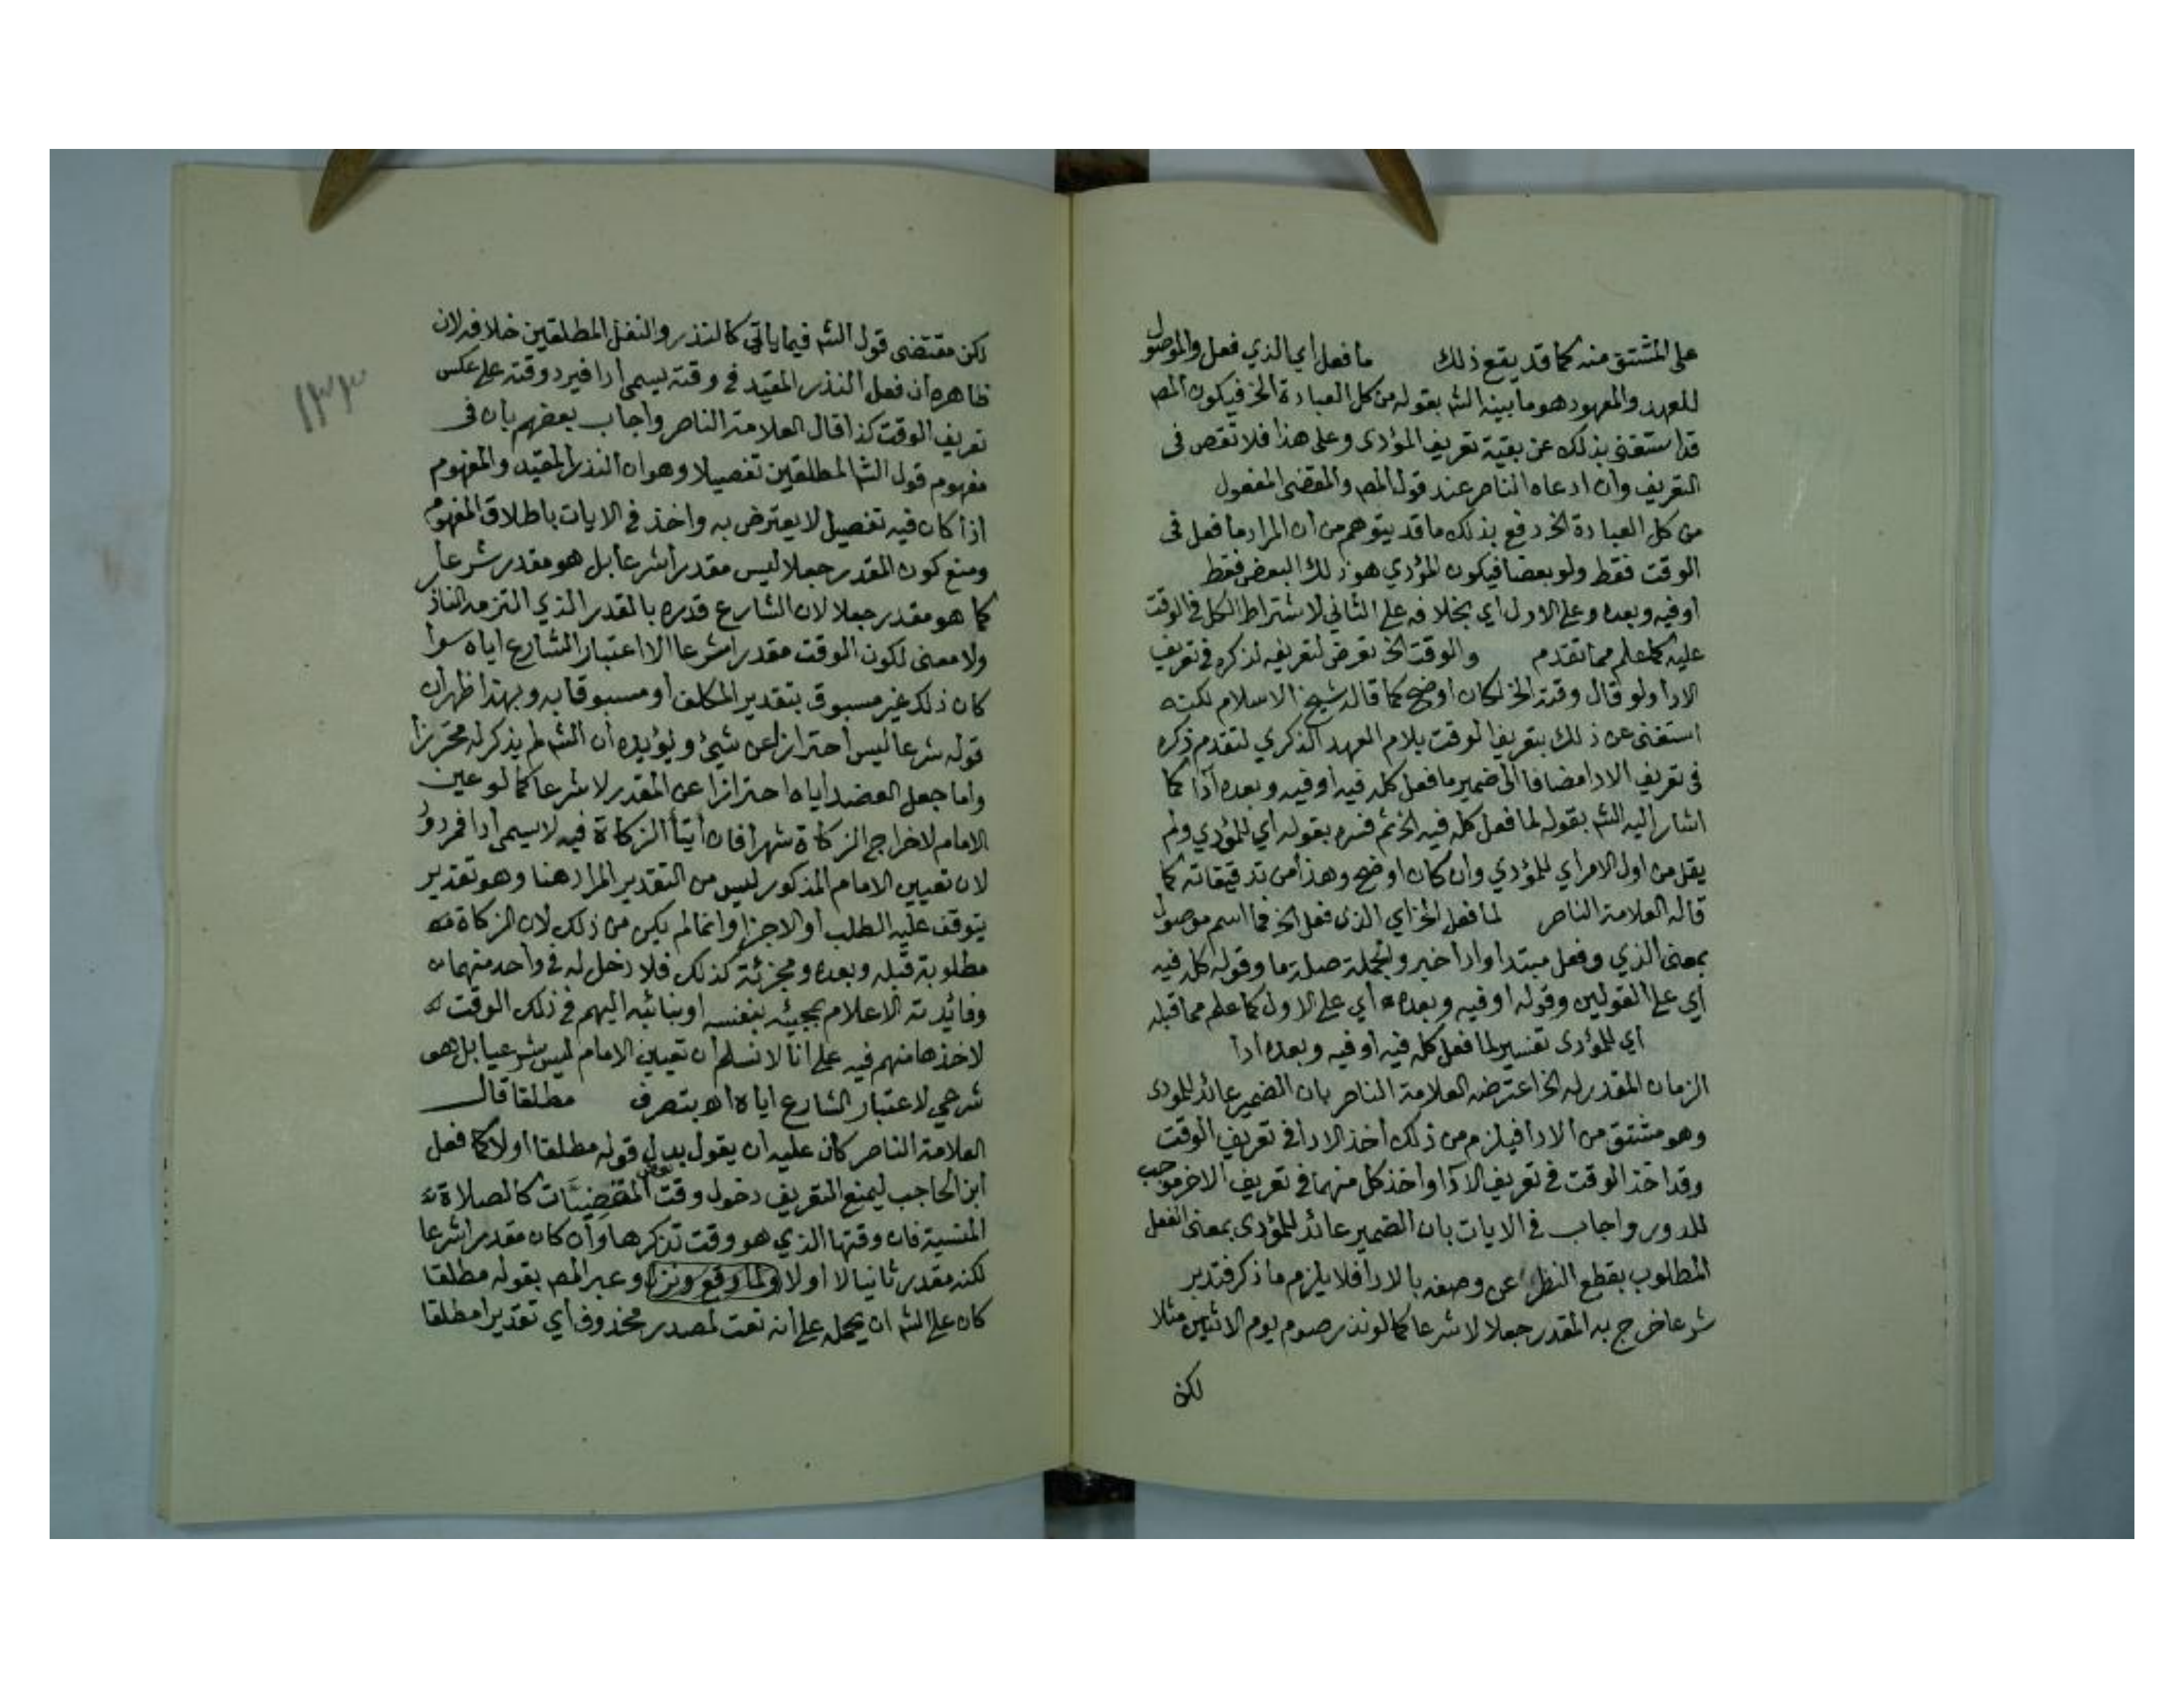 على المشتق منه كما قد يقع ذلك ما فعل اي الذي فعل والموصول
للعهد والمعهود هو ما بينه الشه بقوله من كل العبادة الخ فيكون المصه
قد استغنى بذلك عن بقية تعريف المؤدى وعلى هذا فلا نقص فى
التعريف وان ادعاه الناصر عند قول المصه والمقضى المفعول
من كل العبادة الخ دفع بذلك ما قد يتوهم من ان المراد ما فعل فى
الوقت فقط ولو بعضا فيكون المؤدي هو ذلك البعض فقط
او فيه وبعده وعلى الاول اي بخلافه على الثاني لاشتراط الكل في الوقت
عليه كما علم مما تقدم والوقت الخ تعرض لتعريفه لذكره في تعريف
الادا ولو قال وقته الخ لكان اوضح كما قاله شيخ الاسلام لكنه
استغنى عن ذلك بتعريف الوقت بلام العهد الذكري لتقدم ذكره
فى تعريف الادا مضافا الى ضمير ما فعل كله فيه او فيه وبعده أدا كما
اشار اليه الشه بقوله لما فعل كله فيه الخ ثم فسره بقوله اي للمؤدي ولم
يقل من اول الامر اي للمؤدي وان كان اوضح وهذا من تدقيقاته كما
قاله العلامة الناصر لما فعل الخ اي الذى فعل الخ فما اسم موصول
بمعنى الذي وفعل مبتدا وادا خبر والجملة صلة ما وقوله كله فيه
أي على القولين وقوله او فيه وبعده اي على الاول كما علم مما قبله
اي للمؤدى تفسير لما فعل كله فيه أو فيه وبعده ادا
الزمان المقدر له الخ اعترضه العلامة الناصر بان الضمير عائد للمودى
وهو مشتق من الادا فيلزم من ذلك أخذ الادا في تعريف الوقت
وقد اخذ الوقت في تعريف الأدا واخذ كل منهما في تعريف الاخر موجب
للدور واجاب في الايات بان الضمير عائد للمؤدى بمعنى الفعل
المطلوب بقطع النظر عن وصفه بالادا فلا يلزم ما ذكر فتدبر
شرعا خرج به المقدر جعلا لا شرعا كما لو نذر صوم يوم الاثنين مثلا
لكن
١٣٣
لكن مقتضى قول الشه فيما يأتي كالنذر والنفل المطلقين خلافه لان
ظاهره ان فعل النذر المقيد في وقته يسمى أدا فيرد وقته على عكس
تعريف الوقت كذا قال العلامة الناصر واجاب بعضهم بان فى
مفهوم قول الشه المطلقين تفصيلا وهو ان النذر المقيد والمفهوم
اذا كان فيه تفصيل لا يعترض به واخذ في الايات باطلاق المفهوم
ومنع كون المقدر جعلا ليس مقدرا شرعا بل هو مقدر شرعا
كما هو مقدر جعلا لان الشارع قدره بالقدر الذي التزمه الناذر
ولا معنى لكون الوقت مقدرا شرعا الا اعتبار الشارع اياه سوا
كان ذلك غير مسبوق بتقدير المكلف أو مسبوقا به وبهذا ظهر أن
قوله شرعا ليس احترازا عن شيئ ويؤيده أن الشه لم يذكر له محترزا
واما جعل العضد اياه احترازا عن المقدر لا شرعا كما لو عين
الامام لاخراج الزكاة شهرا فان أيتأ الزكاة فيه لا يسمى أدا فمردود
لان تعيين الامام المذكور ليس من التقدير المراد هنا وهو تقدير
يتوقف عليه الطلب أو الاجزا وانما لم يكن من ذلك لان الزكاة
مطلوبة قبله وبعده ومجزئة كذلك فلا دخل له في واحد منهما
وفائدته الاعلام بمجيئه بنفسه او بنائبه اليهم في ذلك الوقت
لاخذها منهم فيه على انا لا نسلم ان تعيين الامام ليس شرعيا بل هو
شرعي لاعتبار الشارع اياه اه بتصرف مطلقا قال
العلامة الناصر كان عليه ان يقول بدل قوله مطلقا اولا كما فعل
ابن الحاجب ليمنع التعريف دخول وقت بعض المقضيات كالصلاة
المنسية فان وقتها الذي هو وقت تذكرها وأن كان مقدرا شرعا
لكنه مقدر ثانيا لا اولا وعبر المصه بقوله مطلقا
كان على الشه ان يحمله على أنه نعت لمصدر محذوف اي تقديرا مطلقا